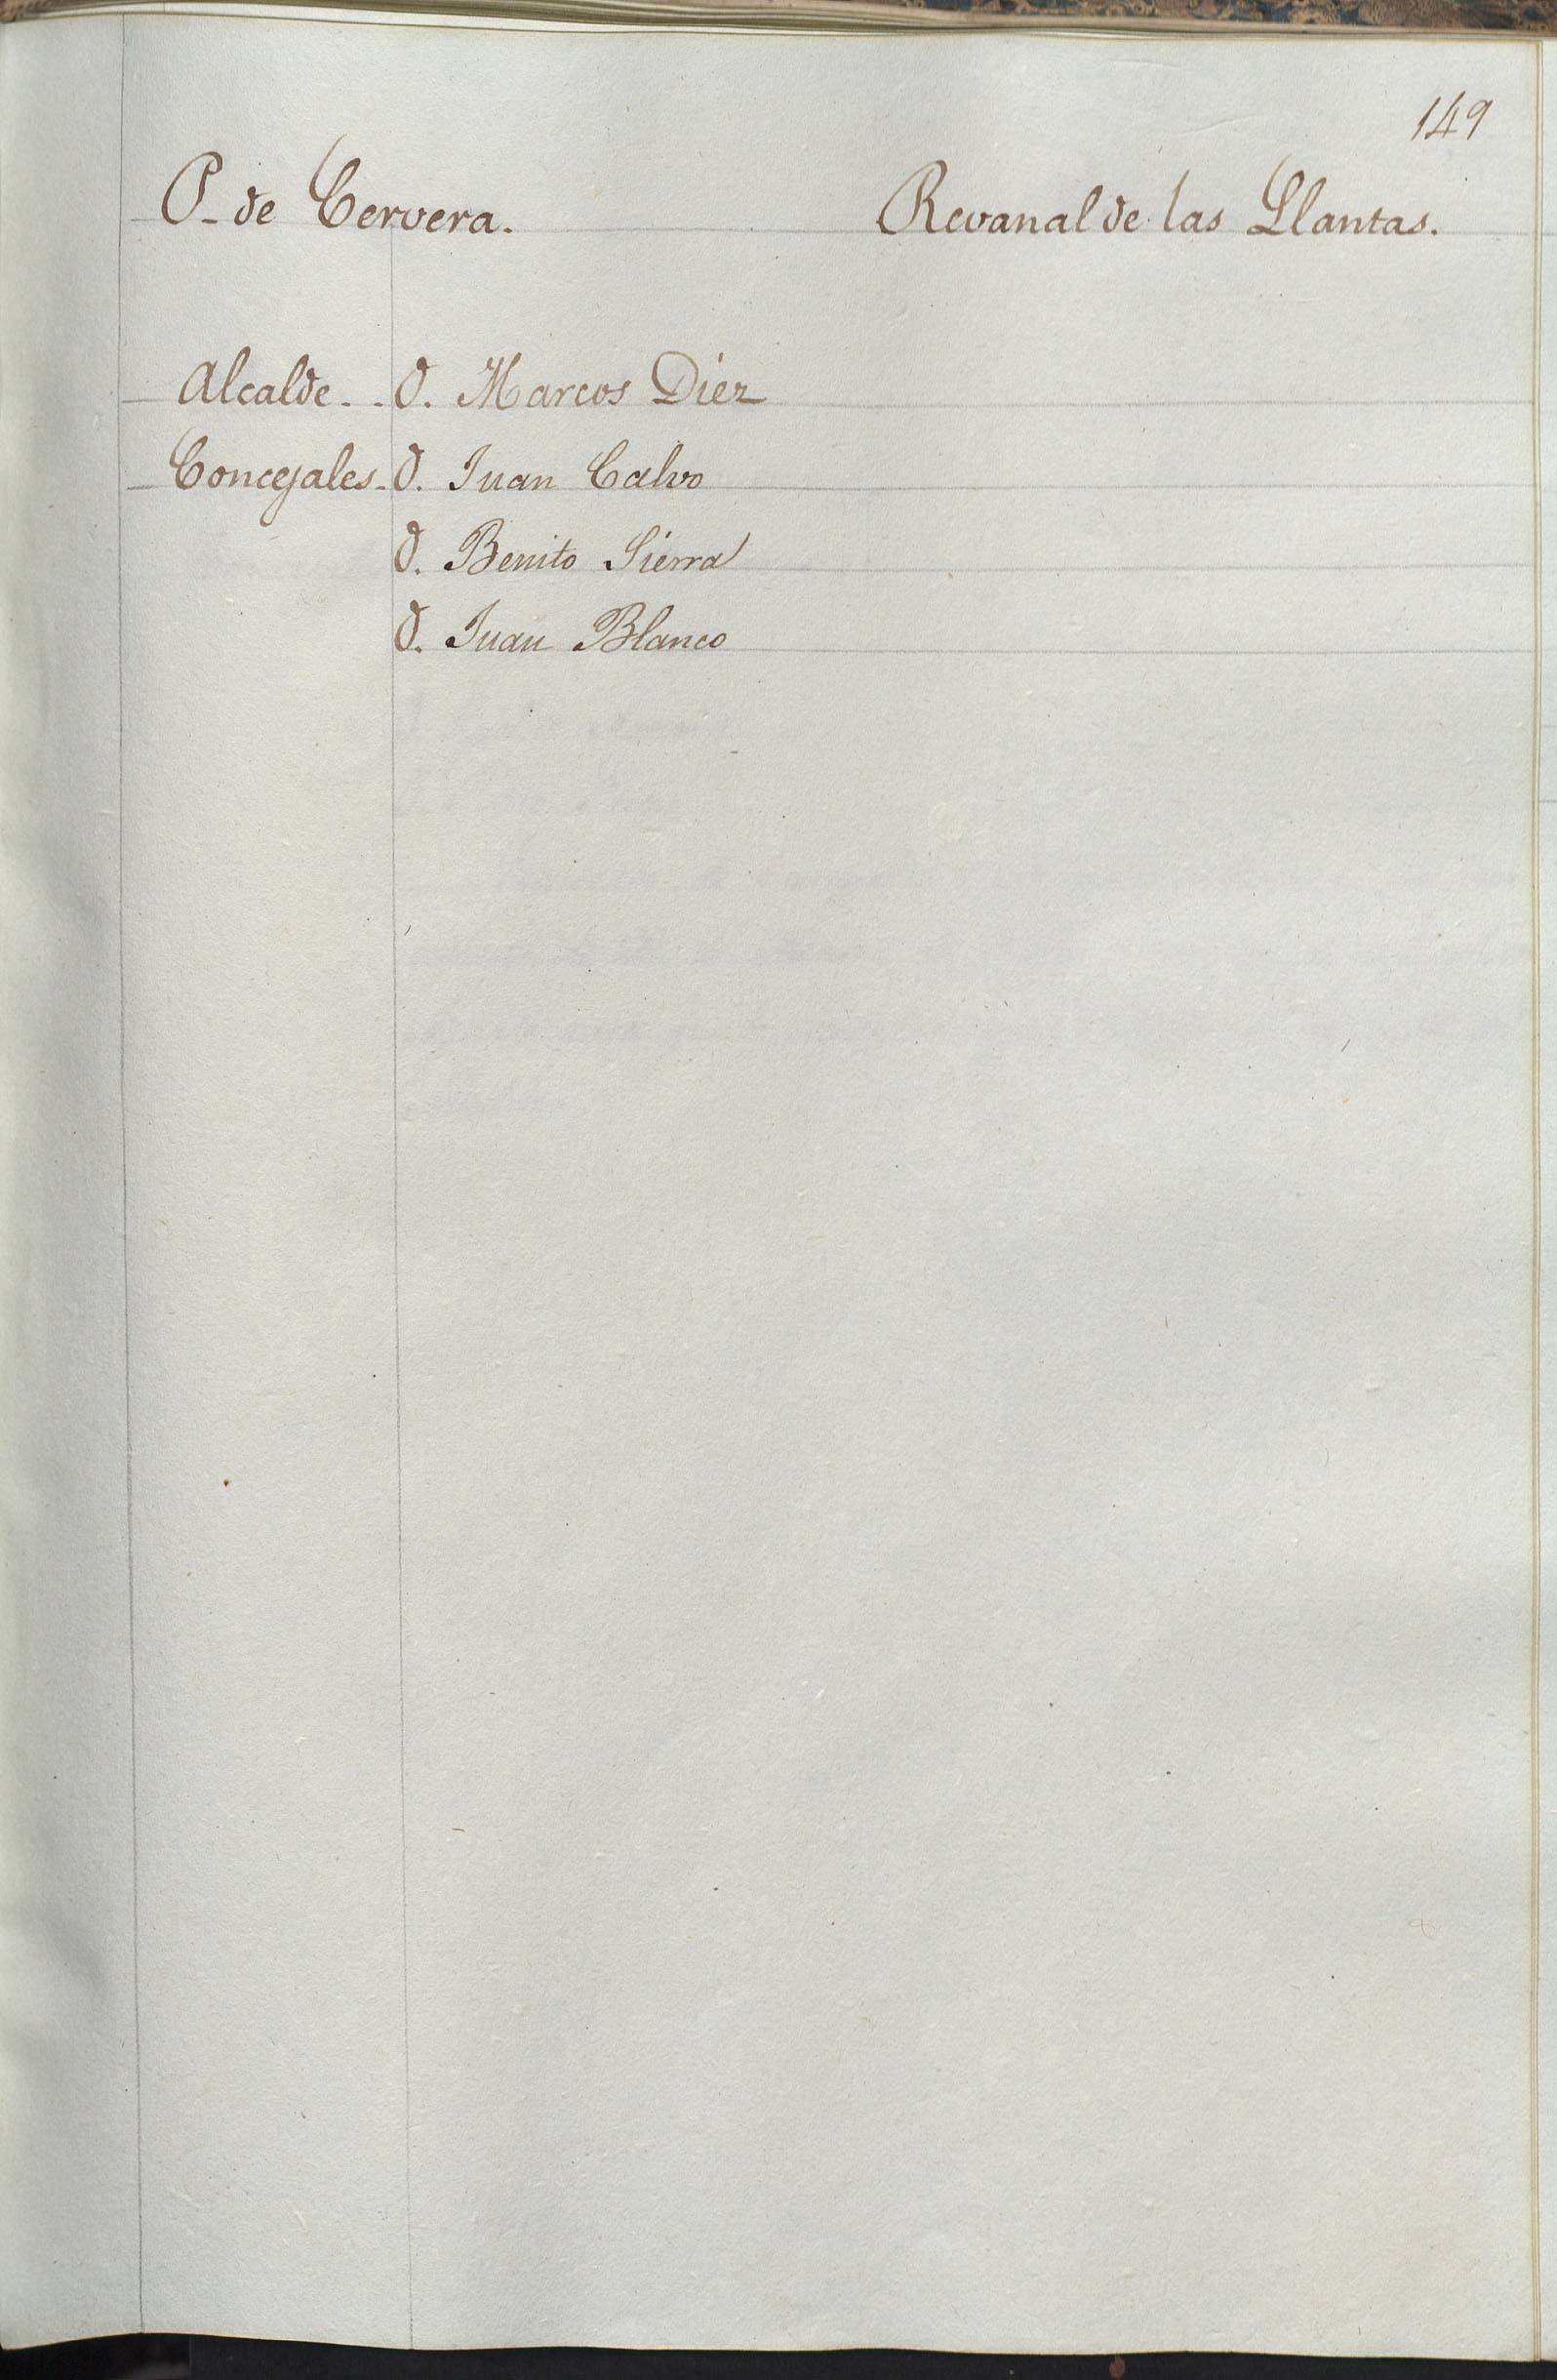 149
P. de Cervera. Revanal de las Llantas.
Alcalde - . D. Marcos Diez
Concejales - D. Juan Calvo
D. Benito Sierra
D. Juan Blanco